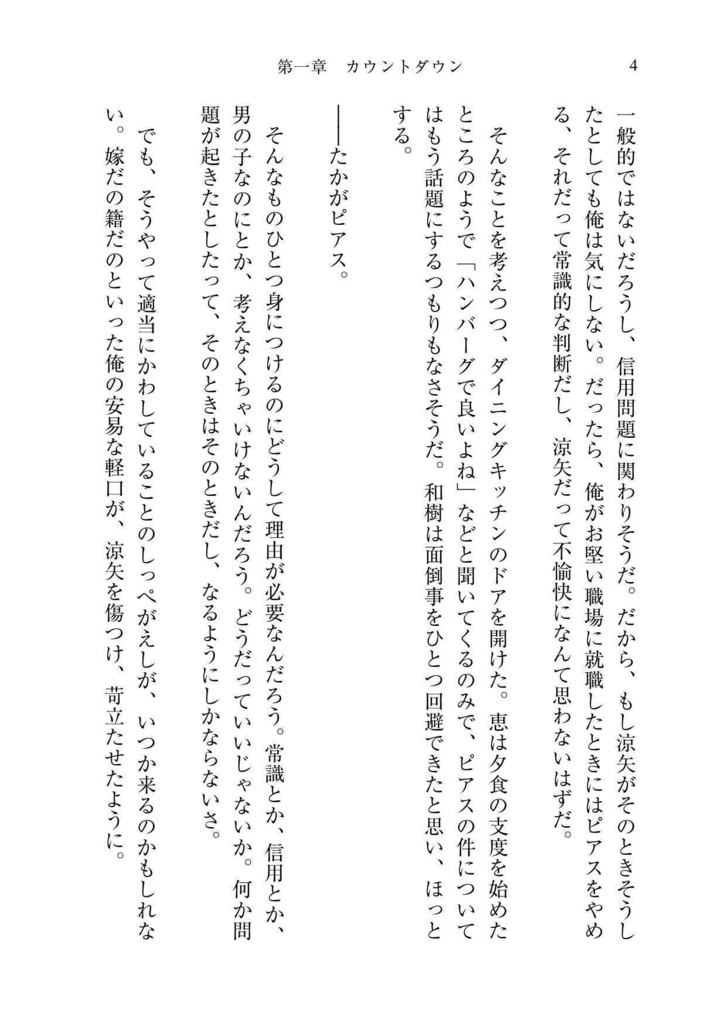 第一章　カウントダウン
4
一般的ではないだろうし、信用問題に関わりそうだ。だから、もし涼矢がそのときそうし
たとしても俺は気にしない。だったら、俺がお堅い職場に就職したときにはピアスをやめ
る、それだって常識的な判断だし、涼矢だって不愉快になんて思わないはずだ。
そんなことを考えつつ、ダイニングキッチンのドアを開けた。恵は夕食の支度を始めた
ところのようで「ハンバーグで良いよね」などと聞いてくるのみで、ピアスの件について
はもう話題にするつもりもなさそうだ。和樹は面倒事をひとつ回避できたと思い、ほっと
する。
――たかがピアス。
そんなものひとつ身につけるのにどうして理由が必要なんだろう。常識とか、信用とか、
男の子なのにとか、考えなくちゃいけないんだろう。どうだっていいじゃないか。何か問
題が起きたとしたって、そのときはそのときだし、なるようにしかならないさ。
でも、そうやって適当にかわしていることのしっぺがえしが、いつか来るのかもしれな
い。嫁だの籍だのといった俺の安易な軽口が、涼矢を傷つけ、苛立たせたように。